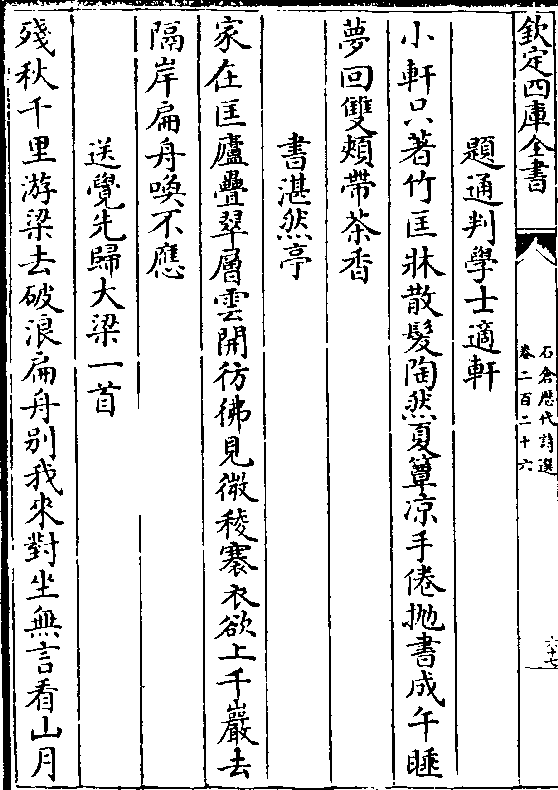 欽定四庫全書
石倉歷代詩選
卷二百二十六
六十七
題通判學士適軒
小軒只著竹匡牀散髮陶然夏簟凉手倦抛書成午睡
夢回雙頰帶茶香
書湛然亭
家在匡廬疊翠層雲開彷彿見微稜褰衣欲上千巖去
隔岸扁舟喚不應
送覺先歸大梁一首
殘秋千里游梁去破浪扁舟别我來對坐無言看山月